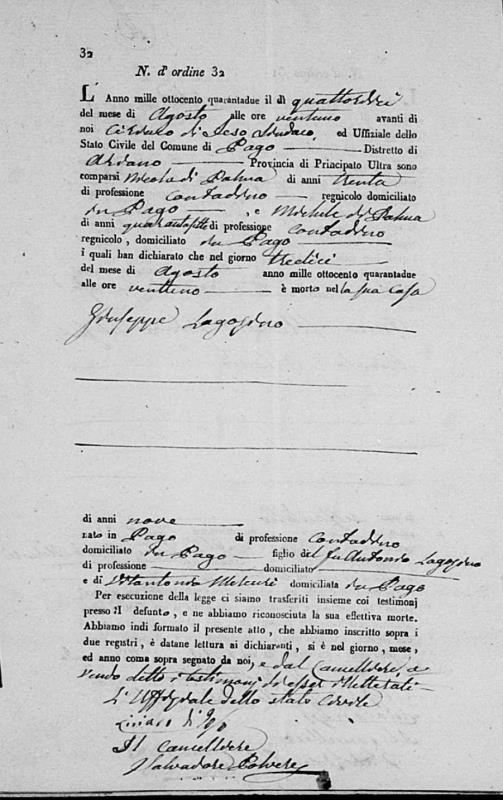 32
N. d' ordine 32
L' Anno mille ottocento quarantadue il dì quattordici
del mese di Agosto alle ore ventuno avanti di
noi Ciriaco di Sindaco, ed Uffiziale dello
Stato Civile del Comune di Pago Distretto di
Ariano Provincia di Principato Ultra sono
comparsi Nicola di Palma di anni trenta
di professione contadino regnicolo domiciliato
in Pago, e Michele di Palma
di anni quarantasette di professione contadino
regnicolo, domiciliato in Pago
i quali han dichiarato che nel giorno tredici
del mese di Agosto anno mille ottocento quarantadue
alle ore ventuno è morto nella sua casa
Giuseppe Lagozino
di anni nove
nato in Pago di professione contadino
domiciliato in Pago figlio del fu Antonio Lagozino
di professione domiciliato
e di Mercuri domiciliata in Pago
Per esecuzione della legge ci siamo trasferiti insieme coi testimonj
presso il defunto, e ne abbiamo riconosciuta la sua effettiva morte.
Abbiamo indi formato il presente atto, che abbiamo inscritto sopra i
due registri, è datane lettura ai dichiaranti, si è nel giorno, mese,
ed anno come sopra segnato da noi, e dal Cancelliere, a
vendo detto i testimonj di esser illetterati
L'Uffiziale dello stato Civile
Ciriaco
Il Cancelliere
Salvadore Polvere